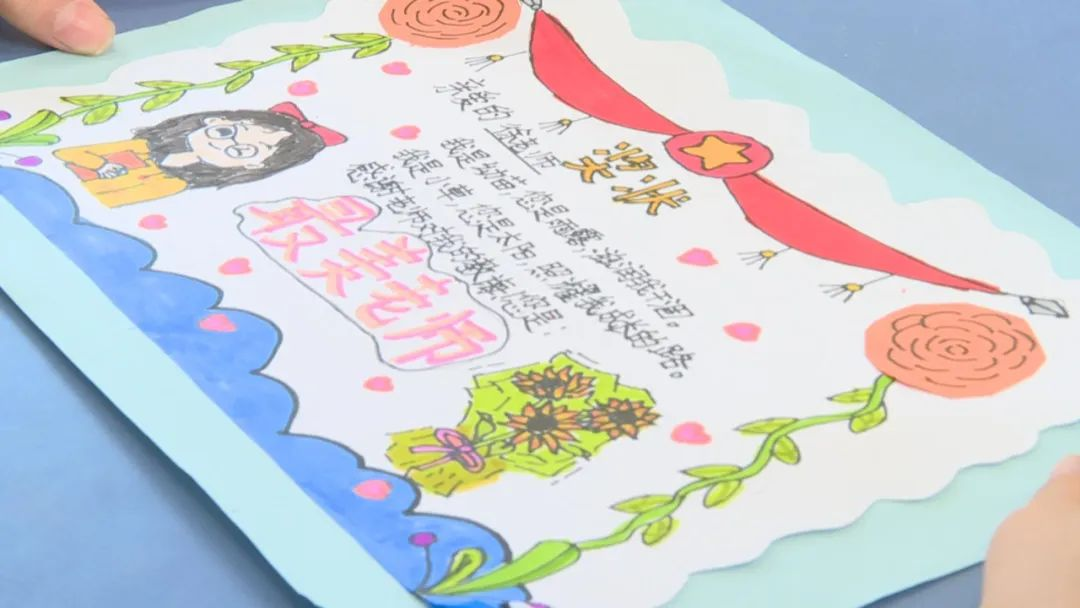 奖状
亲爱的 老师
我是幼苗,您是雨露,滋润
我是小草,您是太阳,照耀我成长的路。
感谢老师对我的教 您是:
最美老师